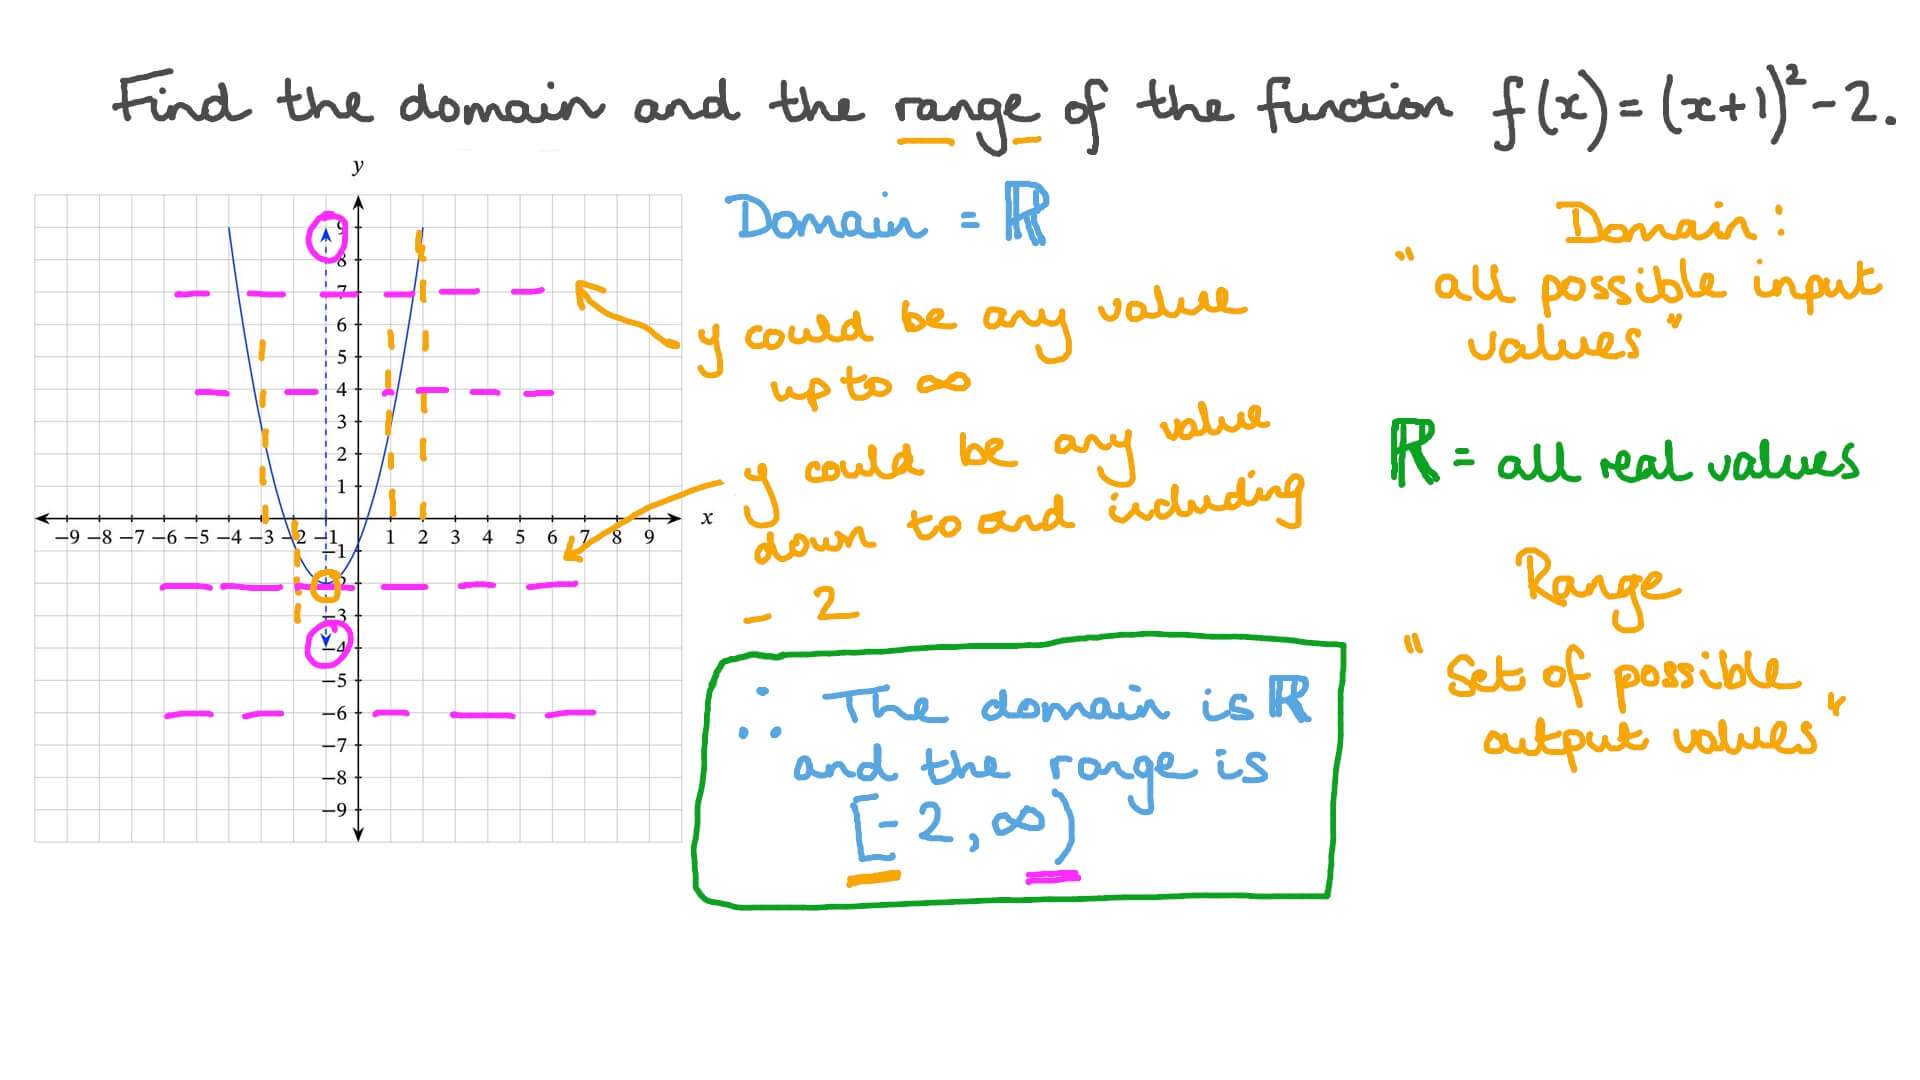 Find the domain and the range of the function f(x) = (x+1)² - 2.
y
9
8
7
6
5
4
3
2
1
-9 -8 -7 -6 -5 -4 -3 -2 -1 1 2 3 4 5 6 7 8 9 x
-1
2
-3
-4
-5
-6
-7
-8
-9
Domain = ℝ
y could be any value
up to ∞
y could be any value
down to and including
- 2
∴ The domain is ℝ
and the range is
[-2, ∞)
Domain:
"all possible input
values"
ℝ = all real values
Range
"Set of possible
output values"